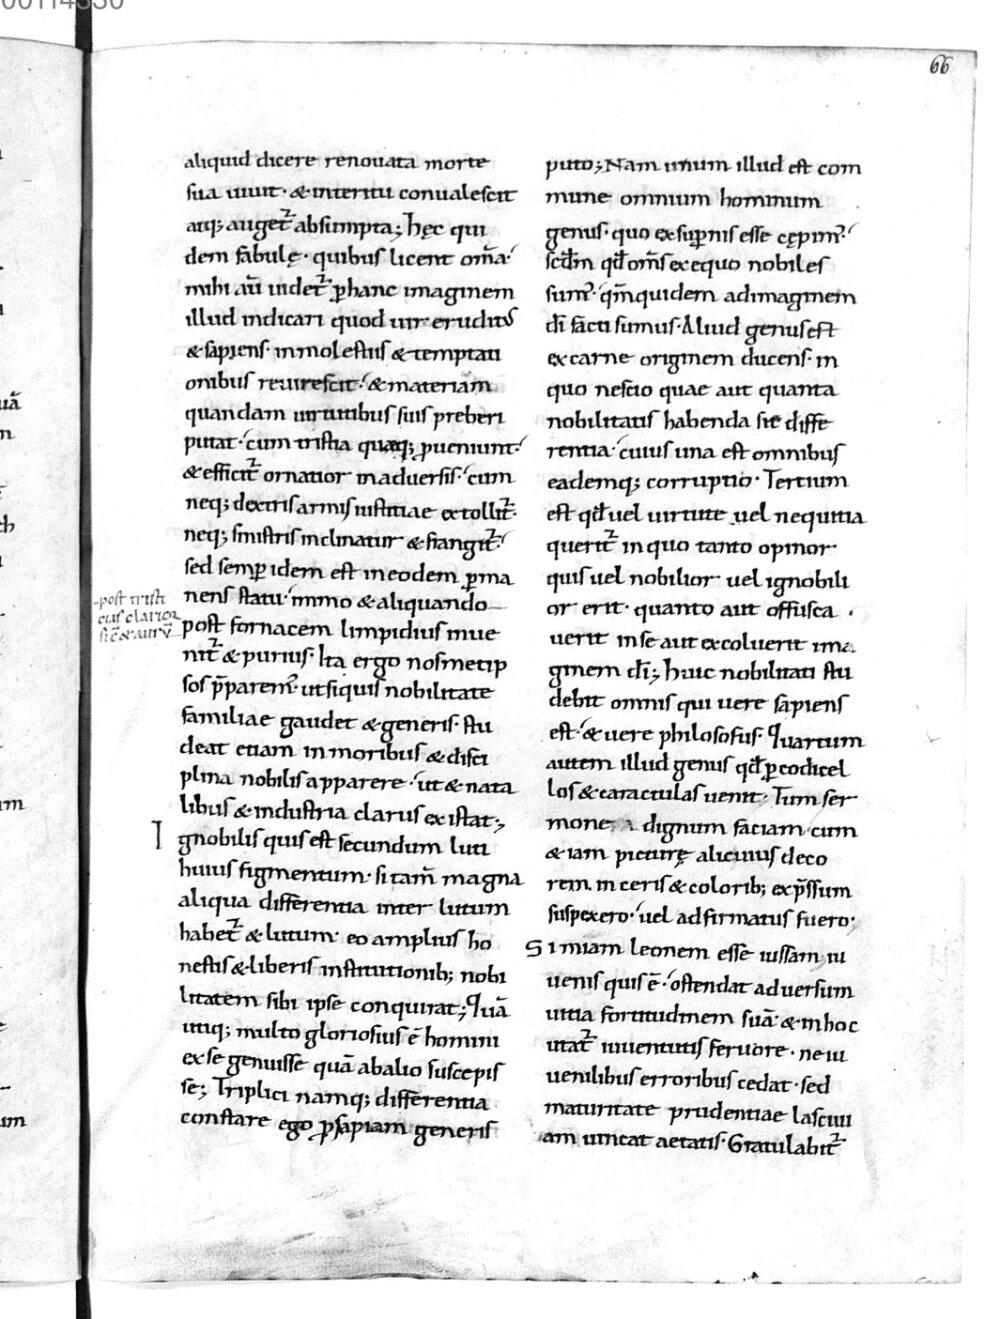 00114330
66
aliquid dicere renouata morte
sua uiuit · & interitu conualescit
atq; auget᷑ absumpta; hęc qui
dem fabulę · quibus licent om̄a
mihi aūt uidet᷑ ꝑ hanc imaginem
illud indicari quod uir eruditus
& sapiens · in molestiis & temptati
onibus reuirescit · & materiam
quandam uirtutibus suis preberi
putat · cum tristia quaq; ꝓueniunt ·
& efficit᷑ ornatior in aduersis · cum
neq; dextris armis iustitiae extollit᷑ ·
neq; sinistris inclinatur & frangit᷑ ·
sed semꝑ idem est in eodem ꝑma
nens statu · immo & aliquando
post fornacem limpidius inue
nit᷑ & purius · Ita ergo nosmetip
sos p̄parem᷒ · ut siquis nobilitate
familiae gaudet & generis · stu
deat etiam in moribus & disci
plina nobilis apparere · ut & nata
libus & industria clarus existat;
Ignobilis quis est secundum luti
huius figmentum · si tam̄ magna
aliqua differentia inter lutum
habet᷑ & lutum · eo amplius ho
nestis & liberis institutionib; nobi
litatem sibi ipse conquirat; Quā
utiq; multo gloriosius ē homini
ex se genuisse quā ab alio suscepis
se; Triplici namq; differentia
constare ego ꝓsapiam generis
-post tristi
cius clarior
sic & aurū
puto; Nam unum illud est com
mune omnium hominum
genus · quo ex suꝑnis esse cępim᷒ ·
scd̄m qd̄ om̄s ex equo nobiles
sum᷒ · qm̄quidem ad imaginem
dī facti sumus · Aliud genus est
ex carne originem ducens · in
quo nescio quae aut quanta
nobilitatis habenda sit diffe
rentia · cuius una est omnibus
eademq; corruptio · Tertium
est qd̄ uel uirtute uel nequitia
querit᷑ in quo tanto opinor
quis uel nobilior uel ignobili
or erit · quanto aut offusca
uerit in se aut excoluerit ima
ginem dī; huic nobilitati stu
debit omnis qui uere sapiens
est · & uere philosofus · Quartum
autem illud genus qd̄ ꝑ codicel
los & caractulas uenit · Tum ser
mone dignum faciam cum
& iam picturę alicuius deco
rem in ceris & colorib; exp̄ssum
suspexero · uel adfirmatus fuero ·
Si miam leonem esse iussam iu
uenis quis ē · ostendat aduersum
uitia fortitudinem suā · & in hoc
utat᷑ iuuentutis feruore · ne iu
uenilibus erroribus cedat · sed
maturitate prudentiae lasciui
am uincat aetatis · Gratulabit᷑